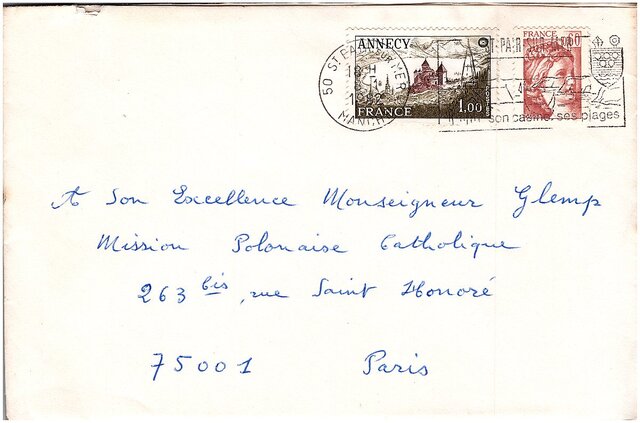 ANNECY
FRANCE 1,00
FRANCE
50 ST PAIR SUR MER
18 H
MANCHE
son casino, ses plages
A Son Excellence Monseigneur Glemp
Mission Polonaise Catholique
263 bis, rue Saint Honoré
75001 Paris